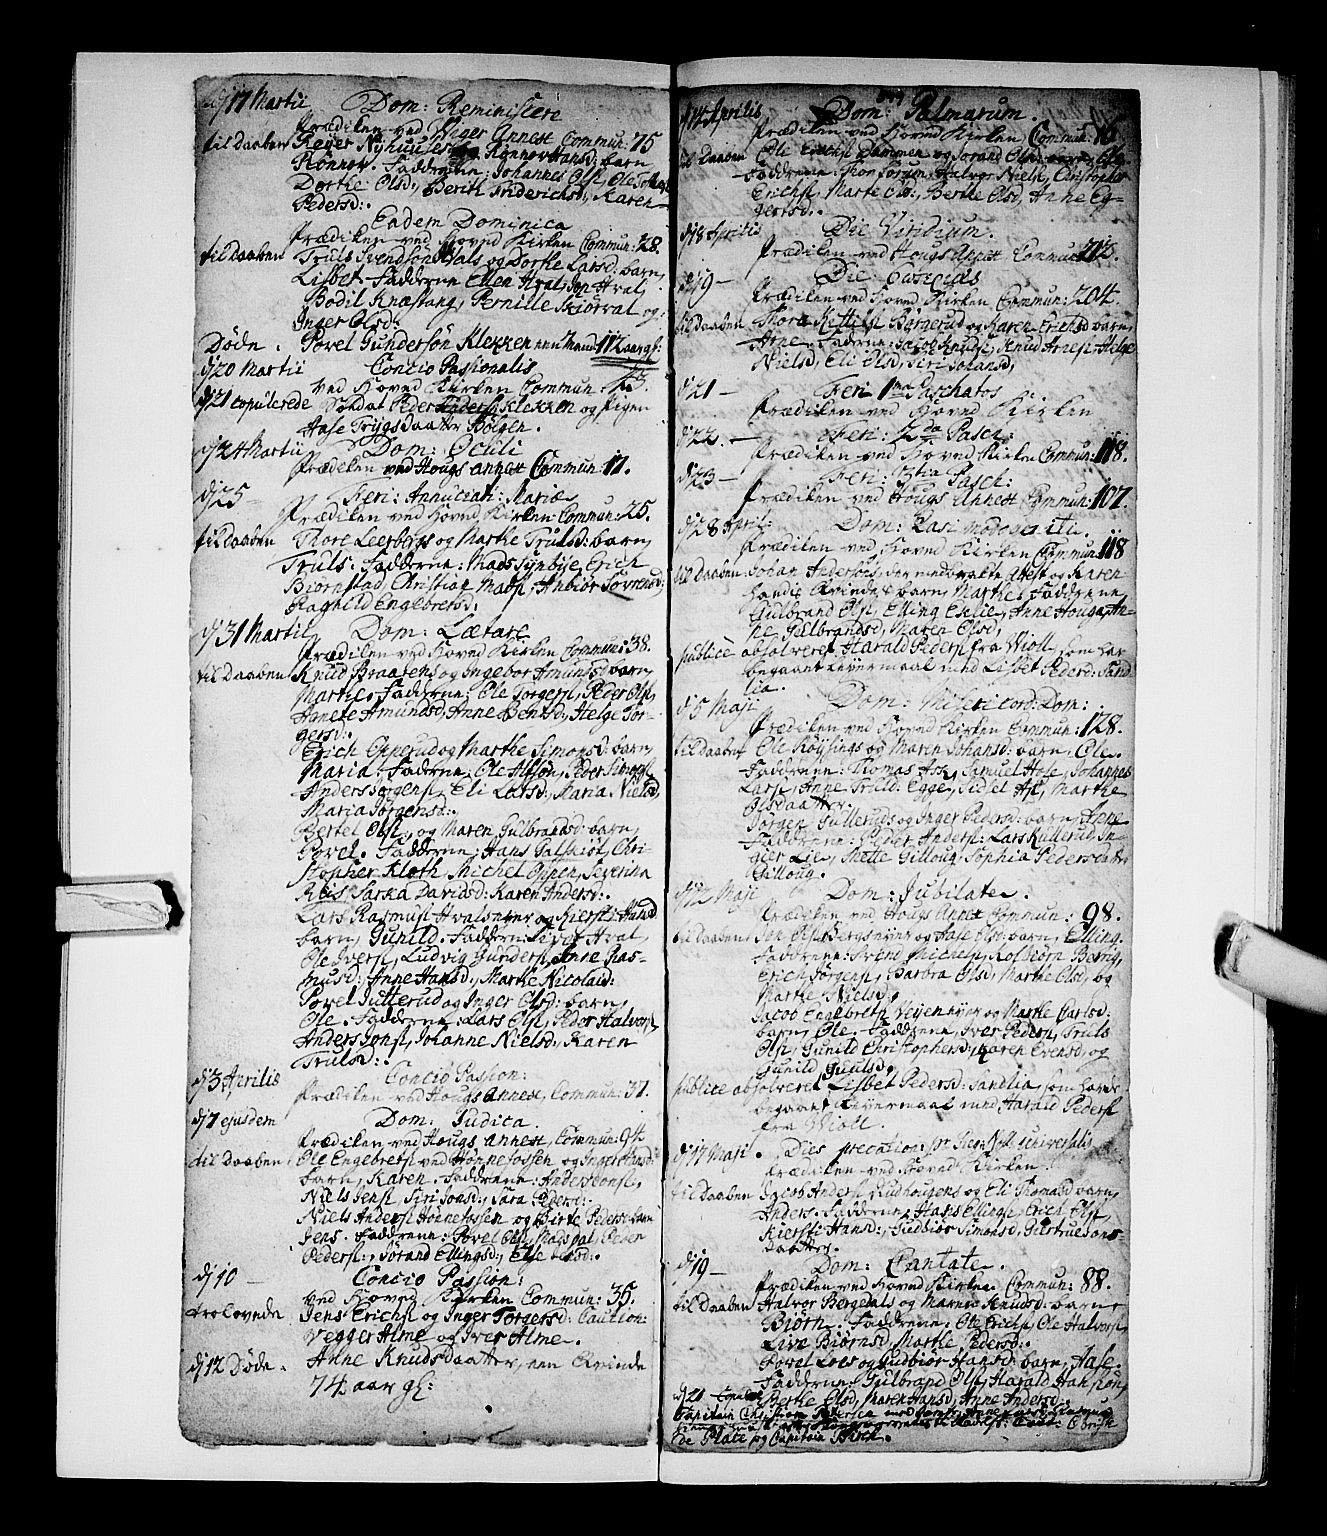 dj 17 Martii Dom: Reminiscere
Prædiken ved Annext Commun: 75
til Daaben Reyer Nyhuus barn
Rønnov. Fadderne: Johannes Olss, Ole
Dorthe Olsd, Berith Friderichsd, Karen
Pedersd:.
Eadem Dominica
Prædiken ved Hoved Kirken Commun: 28.
til Daaben Truls Svendsøn Hals og Dorthe Larsd: barn,
Lisbet. Fadderne Ellen Hval, Jon Hval,
Bodil Knæstang, Pernille og
Inger Olsd:
Døde. Povel Gundersøn Klekken een Mand 112 aar gl:
dj 20 Martii Concio Passionalis
ved Hoved Kirken Commun: 43.
dj 21 copulerede Soldat Peder Anderss Klekken og Pigen
Aase Trygsdaatter Bølgen.
dj 24 Martii Dom: Oculi
Prædiken ved Hougs annext Commun: 17.
dj 25 Feri: Annuciati: Mariæ
Prædiken ved Hoved Kirken Commun: 25.
til Daaben Thore Leerbergs og Marthe Trulsd: barn,
Truls: Fadderne: Mads Synbye, Erich
Biørnstad, Christian Madss, Anbiør Sørensd:
Raghild Engebretsd:
dj 31 Martii Dom: Lætare
Prædiken ved Hoved Kirken Commun: 38.
til Daaben Knud Braatens og Ingebor Amunds: barn
Marthe. Fadderne: Ole Torgerss, Peder Olss,
Anne Amundsd, Anne Bentsd, Helge Tor-
gersd:
Erich Opperud og Marthe Simonsd: barn,
Maria. Fadderne, Ole Alfsøn, Peder Simonss,
Anders Jørgenss, Eli Larsd, Maria Nielsd,
Maria Jørgensd:.
Bertel Olss, og Maren Gulbrandsd: barn,
Povel. Fadderne, Hans Chri-
stopher Kloth, Michel Oppen, Severina
Riis, Sarka Davidsd: Karen Andersd:.
Lars Rasmuss Hvals og Kiersti
barn, Gunild. Fadderne: Iver Hval,
Ole Iverss, Ludvig Gunderss, Anne Ras-
musd: Anne Hansd:, Marthe Nicolaid:
Povel Gutterud og Inger Olsd: barn,
Ole. Fadderne: Lars Olss, Peder Halvorss,
Anders Jonss, Johanne Nielsd, Karen
Trulsd:.
dj 3 Aprilis Concio Passion:
Prædiken ved Hougs Annex, Commun: 37.
dj 7 ejusdem Dom: Judica.
Prædiken ved Hougs annext, Commun: 94.
til Daaben, Ole Engebretss ved Hønnefossen og Inger
barn, Karen. Fadderne: Anders Jonss,
Niels Jenss, Siri Jonsd:, Sara Pedersd:.
Niels Anderss Hønnefossen og Birte Pedersd: barn
Jens. Fadderne: Povel Olss, Mads Peder
Pederss:, Jørand Ellingsd:, Else
dj 10 Concio Passion:
ved Hoved Kirken Commun: 35.
trolovede Jens Erichss og Inger Torgersd: Caution:
Vegger Alme og Iver Alme.
dj 12 Døde. Anne Knudsdaatter, een Qvinde
74 aar gl:
dj 14 Aprilis Dom: Palmarum.
Prædiken ved Hoved Kirken Commun: 76
til Daaben Ole Erichss Dammen og Jorand Olsd: barn,
Fadderne: Halvor Nielss, Christopher
Erichss, Marte Berthe Olsd, Anne Eg-
gertsd:.
dj 18 Aprilis Die Viridium.
Prædiken ved Hougs Commun: 213.
dj 19 — Die
Prædiken ved Hoved Kirken Commun: 204.
til Daaben Thore Kittilss Børgerud og Karen Erichsd barn,
Arne. Fadderne: Jacob Knudss, Knud Arness, Helge
Nielsd, Eli Olsd, Siri Johansd,
dj 21 — Feri 1ma Paschatos
Prædiken ved Hoved Kirken
dj 22. — Feri: 2da Pasch:
Prædiken ved Hoved Kirken Commun: 118.
dj 23 — Feri: 3tia Pasch:
Prædiken ved Hougs Annext Commun: 107.
dj 28 April: Dom: Qvasimodogeniti.
Prædiken ved Hoved Kirken Commun: 118
til Daaben: Johan Anderss, der medbragte Attest og Karen
hands Qvinde barn, Marthe. Fadderne
Gulbrand Olss, Elling Eselie, Anne Houga, An-
ne Gulbrandsd, Maren Olsd,
publicè absolveret Harald Pederss fra Wioll, som har
begaaet Leyermaal med Lisbet Pedersd: Sand-
lia.
dj 5 Maji Dom: Misericord: Dom:
Prædiken ved Hoved Kirken Commun: 128.
til Daaben Ole Røyssings og Maren Johansd: barn, Ole.
Fadderne: Thomas Ask, Samuel Hofe, Johannes
Larss, Anne Trulsd: Egge, Sidsel Marthe
Olsdaatter.
Jørgen Gulleruds og Inger Pedersd: barn,
Fadderne: Peder Anderss: Lars Kullerud, In-
gier Lie, Mette Gilloug, Sophia Pedersdatter
Gilloug.
dj 12 Maji Dom: Jubilate.
Prædiken ved Hougs Annex Commun: 98.
til Daaben Jon Olss Bergs og Aase Olsd: barn, Elling.
Fadderne: Svend Michelss, Rolf Sørn Berrig,
Erich Jørgenss, Barbra Olsd, Marthe Olsd, og
Marthe Nielsd,
Jacob Engebretss Veyen og Marthe Carlsd:
barn, Ole. Fadderne, Iver Pederss, Truls
Olss, Gunild Christophersd:, Karen Evensd, og
Gunild Guulsd:
publice absolveret Lisbet Pedersd: Sandlia, som hafde
begaaet Leyermaal med Harald Pederss
fra Wioll.
dj 17 Maji. Dies precation:
Prædiken ved Hoved Kirken.
til Daaben Jacob Anderss Rudhougens og Eli Thomasd barn,
Anders. Fadderne, Hans Ellingss, Erich Olss,
Kiersti Hansd:, Gudbiør Simonsd, Giertrue Jons-
daatter.
dj 19 — Dom: Cantate.
Prædiken ved Hoved Kirken. Commun: 88.
til Daaben Halvor Bergedals og Marthe Knudsd: barn
Biørn. Fadderne: Ole Erichss, Ole Halvorss,
Live Biørnsd, Marthe Pedersd:.
Povel Loes og Gudbiør Hansd: barn, Aase.
Fadderne: Gulbrand Olss, Harald Hanssøn,
Berthe Olsd, Maren Hansd, Anne Andersd:
dj 21 Copul:
Capitain Christian
de Place og Capitain Birch.